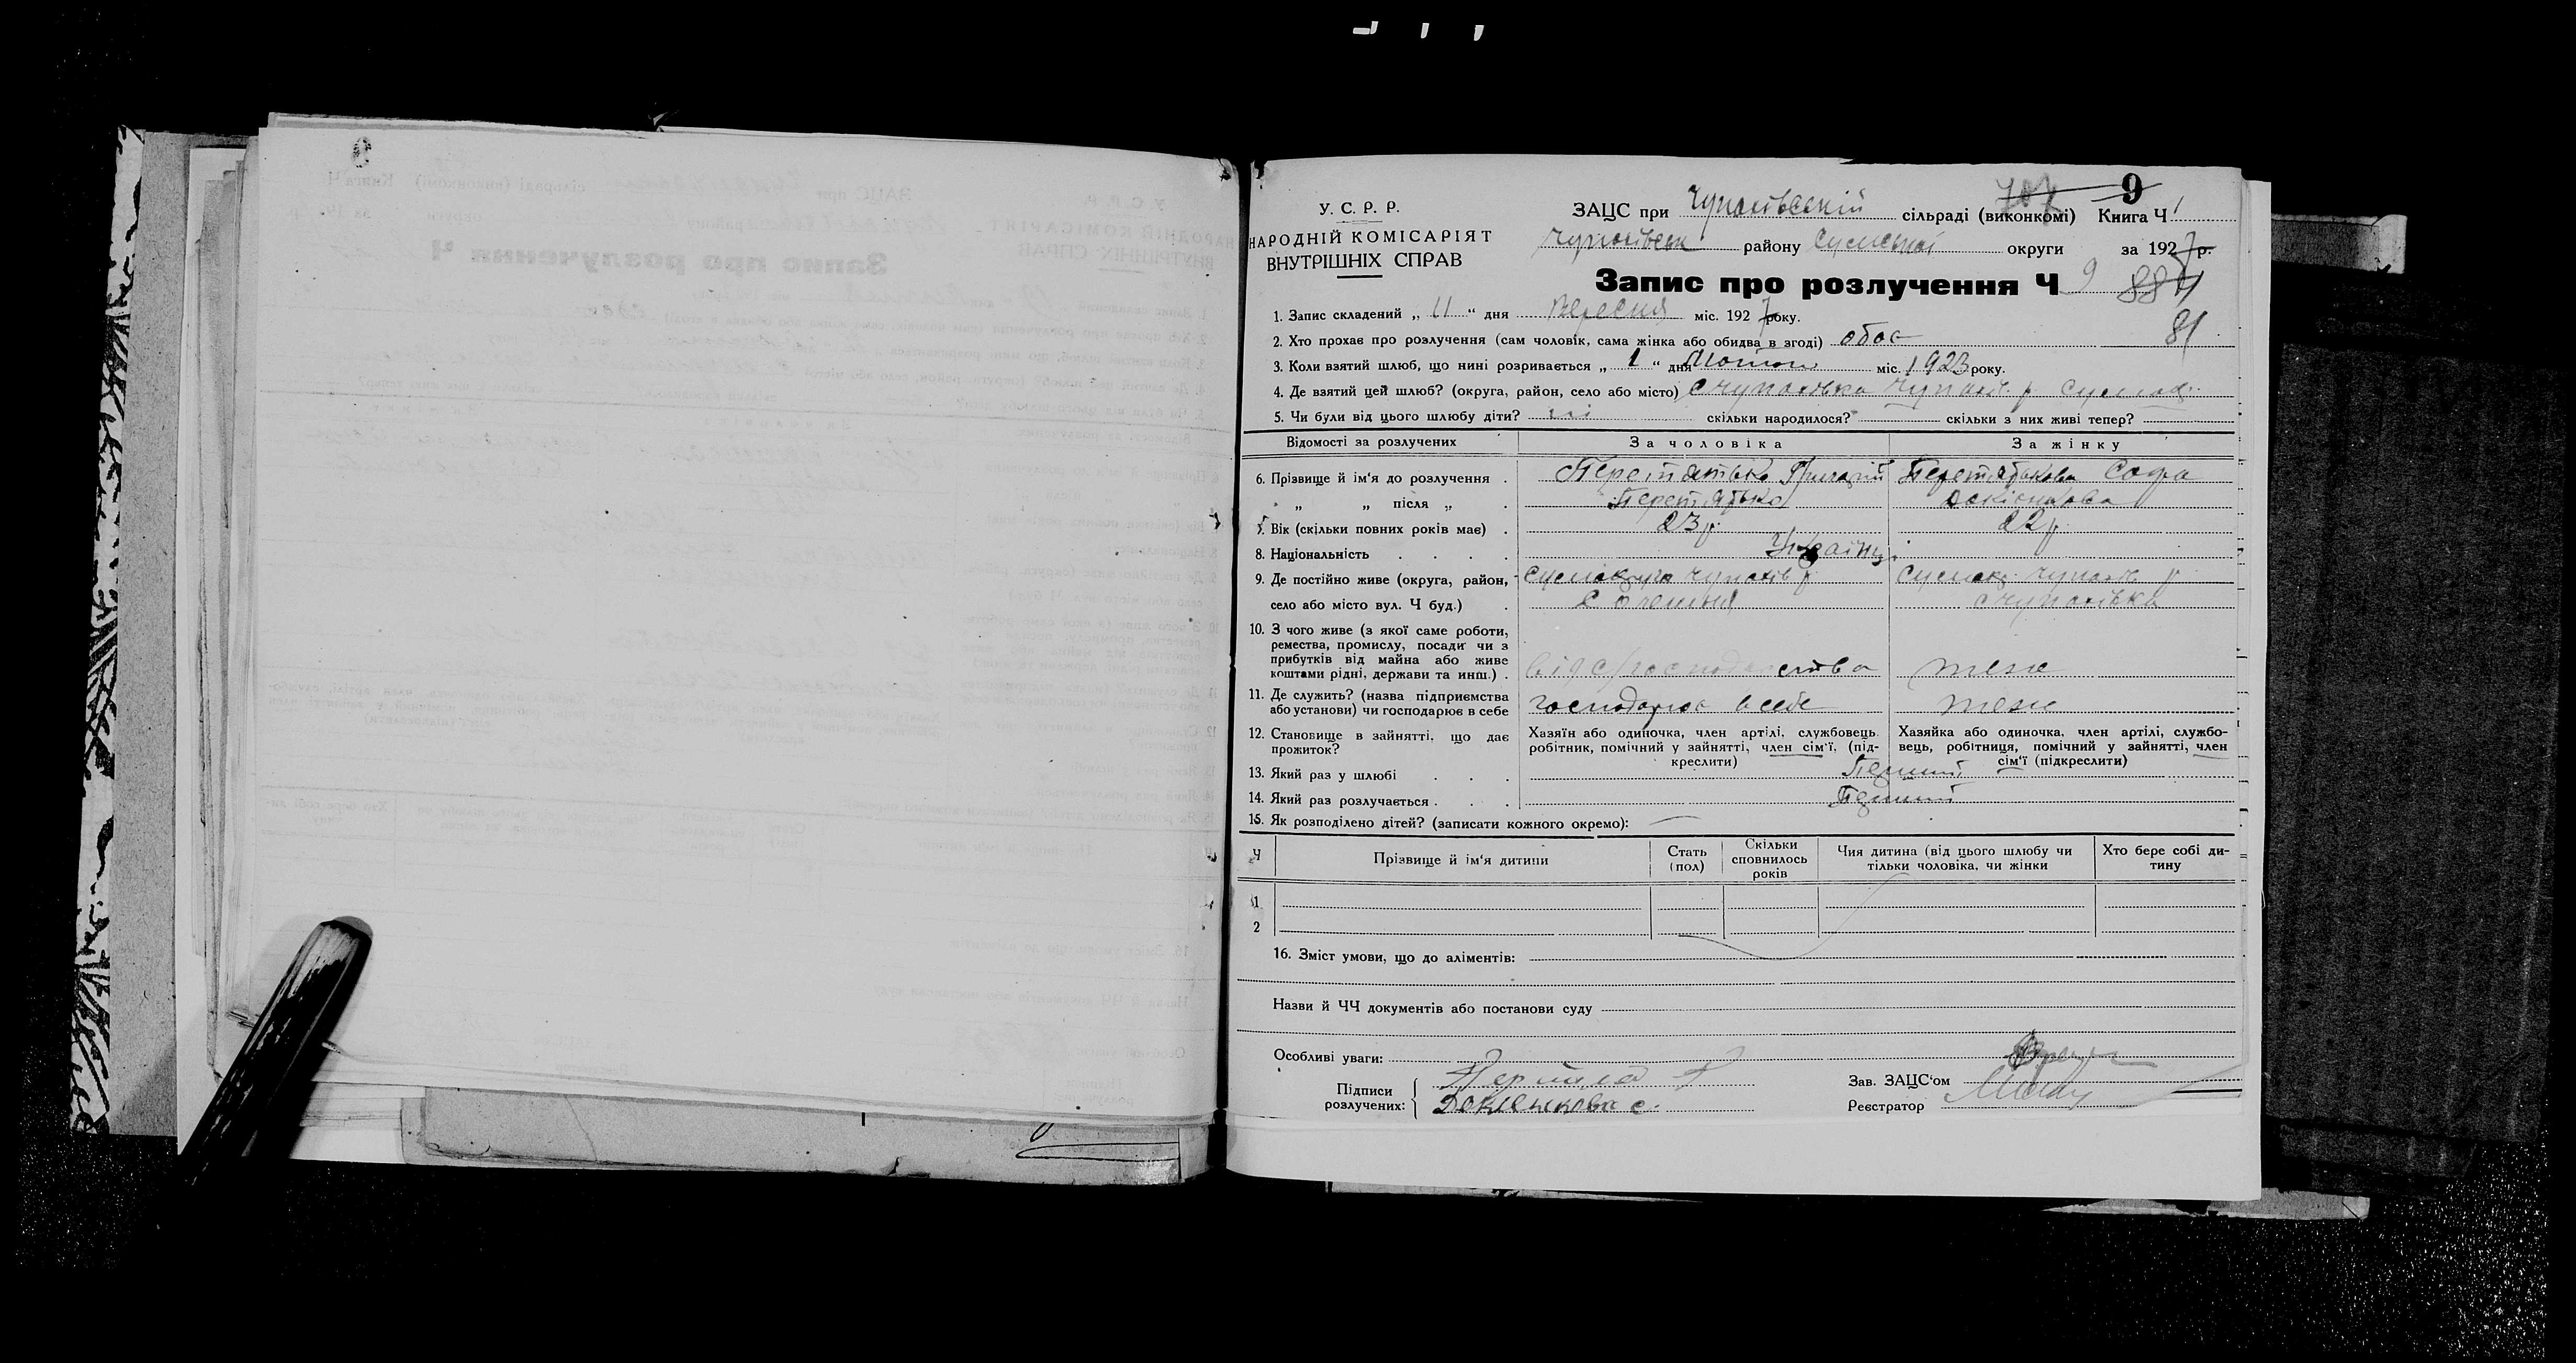 9
У. С. Р. Р.
НАРОДНІЙ КОМІСАРІЯТ
ВНУТРІШНІХ СПРАВ
707 9
ЗАЦС при Чупахівській сільраді (виконкомі) Книга Ч 1
Чупахівськ району Сумської округи за 1927 р.
Запис про розлучення Ч 9
81
1. Запис складений „ 11 “ дня Вересня міс. 1927 року.
2. Хто прохає про розлучення (сам чоловік, сама жінка або обидва в згоді) обоє
3. Коли взятий шлюб, що нині розривається „ 1 “ дня міс. 1923 року.
4. Де взятий цей шлюб? (округа, район, село або місто) с Чупахівка Чупахів. р.
5. Чи були від цього шлюбу діти? ні скільки народилося? скільки з них живі тепер?
Відомості за розлучених За чоловіка За жінку
6. Прізвище й ім'я до розлучення . Перетятько Григорій Перетятькова Софа
„ „ після „ . Перетятько
7. Вік (скільки повних років має) . 23 р. 22 р.
8. Національність . . . . Україн.
9. Де постійно живе (округа, район, Чупахів р. Чупахів р
село або місто вул. Ч буд.) . с Олешня с Чупахівка
10. З чого живе (з якої саме роботи,
ремества, промислу, посади чи з
прибутків від майна або живе
коштами рідні, держави та инш.) . від с/господарства теж
11. Де служить? (назва підприємства
або установи) чи господарює в себе господарює в себе теж
12. Становище в зайнятті, що дає
прожиток?
Хазяїн або одиночка, член артілі, службовець
робітник, помічний у зайнятті, член сім'ї, (під-
креслити)
Хазяйка або одиночка, член артілі, службо-
вець, робітниця, помічний у зайнятті, член
сім'ї (підкреслити)
13. Який раз у шлюбі . . . Перший
14. Який раз розлучається . . . Перший
15. Як розподілено дітей? (записати кожного окремо): —
Ч Прізвище й ім'я дитини Стать (пол) Скільки сповнилось років Чия дитина (від цього шлюбу чи тільки чоловіка, чи жінки Хто бере собі ди-тину
1
2
16. Зміст умови, що до аліментів:
Назви й ЧЧ документів або постанови суду
Особливі уваги:
Підписи
розлучених:
Зав. ЗАЦС'ом
Реєстратор